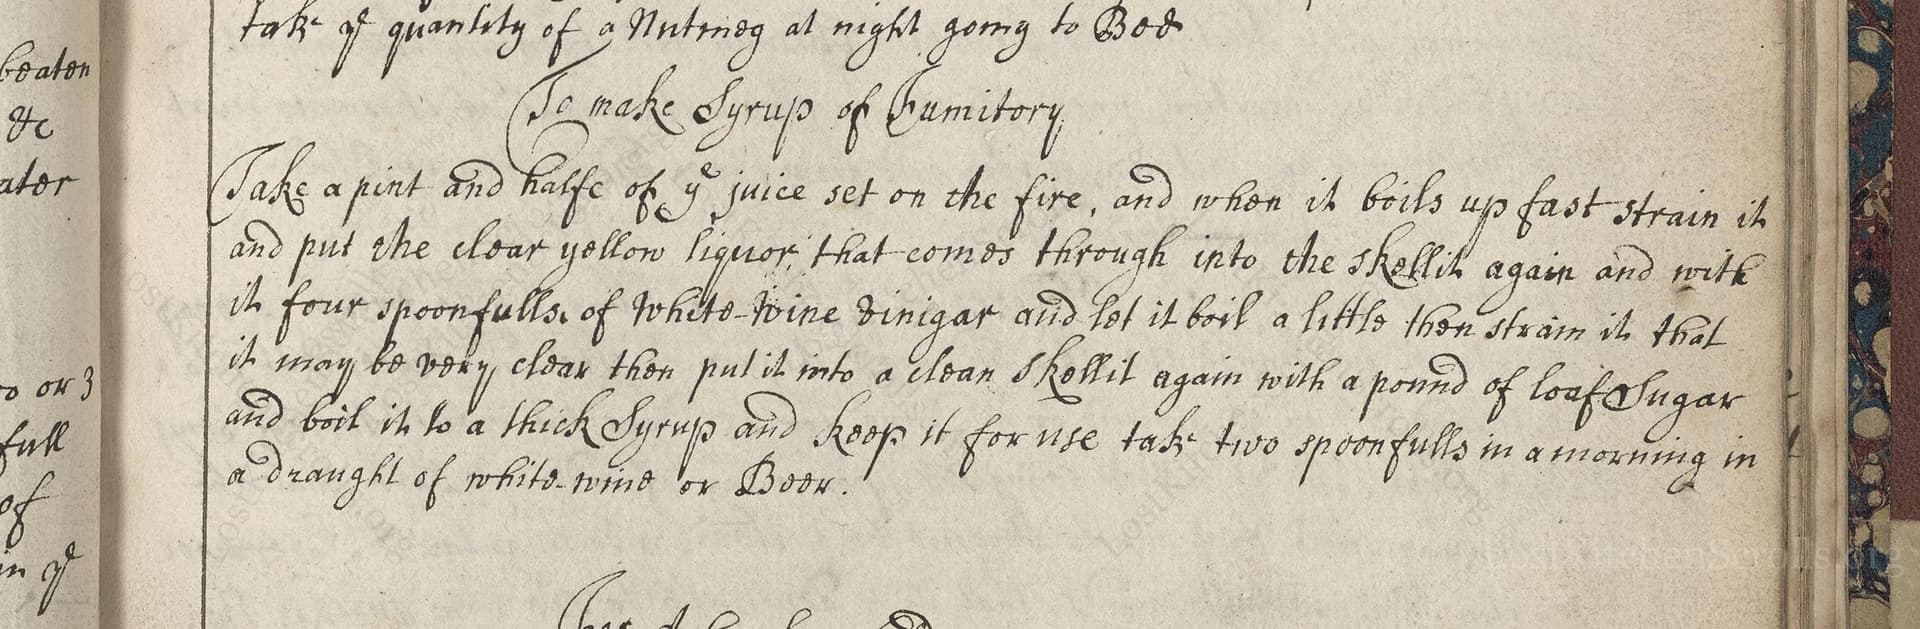 beaten
&c
ater
or 3
full
of
in ye
take ye quantity of a Nutmeg at night going to Bed
To make Syrup of Fumitory
Take a pint and halfe of ye juice set on the fire, and when it boils up fast strain it
and put the clear yellow liquor that comes through into the skellit again and with
it four spoonfulls of white-wine vinigar and let it boil a little then strain it that
it may be very clear then put it into a clean skellit again with a pound of loaf Sugar
and boil it to a thick Syrup and keep it for use take two spoonfulls in a morning in
a draught of white-wine or Beer.